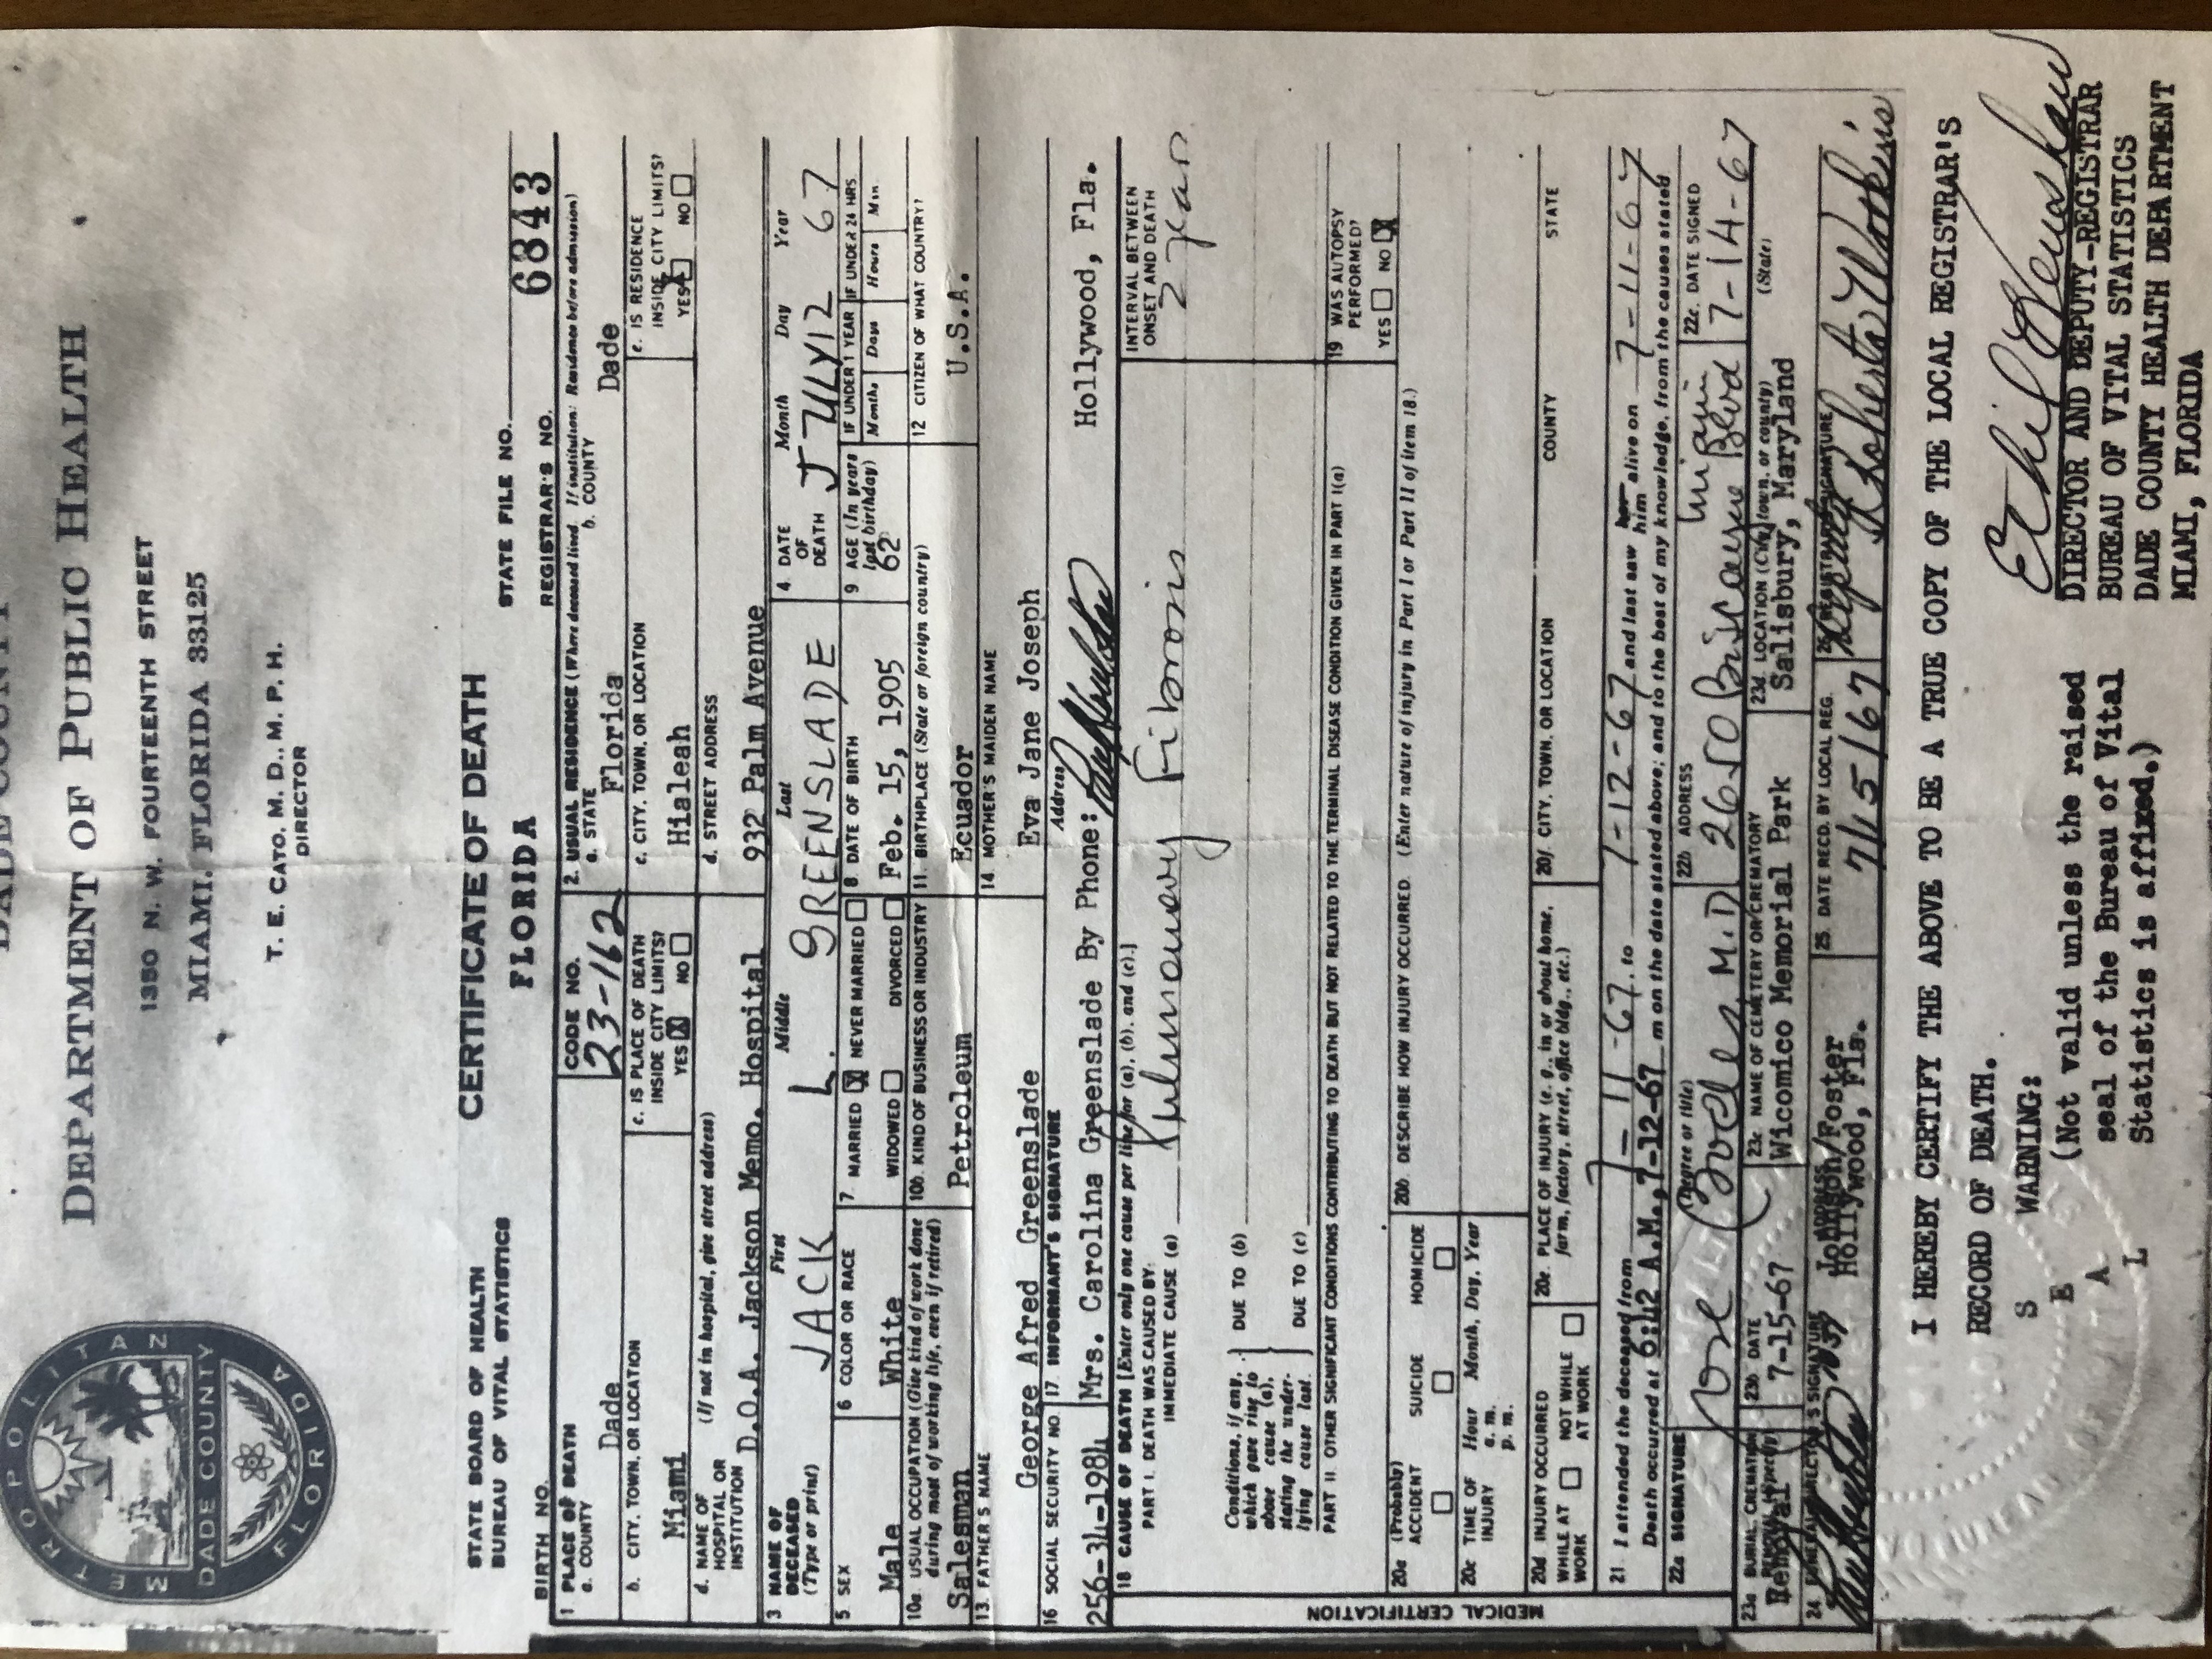 DADE COUNTY
DEPARTMENT OF PUBLIC HEALTH
METROPOLITAN
DADE COUNTY
FLORIDA
1350 N. W. FOURTEENTH STREET
MIAMI, FLORIDA 33125
T. E. CATO, M. D., M. P. H.
DIRECTOR
STATE BOARD OF HEALTH
BUREAU OF VITAL STATISTICS
CERTIFICATE OF DEATH
FLORIDA
STATE FILE NO.
BIRTH NO.
REGISTRAR'S NO. 6843
1 PLACE OF DEATH
a. COUNTY
Dade
CODE NO.
23-162
2. USUAL RESIDENCE (Where deceased lived. If institution: Residence before admission)
a. STATE
Florida
b. COUNTY
Dade
b. CITY, TOWN, OR LOCATION
Miami
c. IS PLACE OF DEATH
INSIDE CITY LIMITS?
YES X NO
c. CITY, TOWN, OR LOCATION
Hialeah
e. IS RESIDENCE
INSIDE CITY LIMITS?
YES X NO
d. NAME OF (If not in hospital, give street address)
HOSPITAL OR
INSTITUTION D.O.A. Jackson Memo. Hospital
d. STREET ADDRESS
932 Palm Avenue
3 NAME OF DECEASED
(Type or print)
First Middle Last
JACK L. GREENSLADE
4. DATE OF DEATH
Month Day Year
JULY 12 67
5. SEX
Male
6 COLOR OR RACE
White
7. MARRIED X NEVER MARRIED
WIDOWED DIVORCED
8. DATE OF BIRTH
Feb. 15, 1905
9 AGE (In years
last birthday)
62
IF UNDER 1 YEAR
Months Days
IF UNDER 24 HRS.
Hours Min.
10a. USUAL OCCUPATION (Give kind of work done
during most of working life, even if retired)
Salesman
10b. KIND OF BUSINESS OR INDUSTRY
Petroleum
11. BIRTHPLACE (State or foreign country)
Ecuador
12 CITIZEN OF WHAT COUNTRY?
U.S.A.
13. FATHER'S NAME
George Afred Greenslade
14. MOTHER'S MAIDEN NAME
Eva Jane Joseph
16 SOCIAL SECURITY NO.
256-34-1984
17. INFORMANT'S SIGNATURE Address
Mrs. Carolina Greenslade By Phone: Hollywood, Fla.
18 CAUSE OF DEATH [Enter only one cause per line for (a), (b), and (c).]
PART I. DEATH WAS CAUSED BY:
IMMEDIATE CAUSE (a) Pulmonary Fibrosis
INTERVAL BETWEEN
ONSET AND DEATH
2 years
Conditions, if any,
which gave rise to
above cause (a),
stating the under-
lying cause last.
DUE TO (b)
DUE TO (c)
PART II. OTHER SIGNIFICANT CONDITIONS CONTRIBUTING TO DEATH BUT NOT RELATED TO THE TERMINAL DISEASE CONDITION GIVEN IN PART I(a)
19 WAS AUTOPSY
PERFORMED?
YES NO X
MEDICAL CERTIFICATION
20a (Probably)
ACCIDENT SUICIDE HOMICIDE
20b. DESCRIBE HOW INJURY OCCURRED. (Enter nature of injury in Part I or Part II of item 18.)
20c TIME OF INJURY
Hour Month, Day, Year
a. m.
p. m.
20d INJURY OCCURRED
WHILE AT WORK NOT WHILE AT WORK
20e. PLACE OF INJURY (e. g., in or about home,
farm, factory, street, office bldg., etc.)
20f. CITY, TOWN, OR LOCATION COUNTY STATE
21 I attended the deceased from 7-11-67. to 7-12-67 and last saw her him alive on 7-11-67
Death occurred at 6:42 A.M.,7-12-67 m on the date stated above; and to the best of my knowledge, from the causes stated
22a SIGNATURE (Degree or title)
Jose M.D
22b ADDRESS
Miami
2650 Biscayne Blvd
22c. DATE SIGNED
7-14-67
23a BURIAL, CREMATION
REMOVAL (Specify)
Removal
23b DATE
7-15-67
23c NAME OF CEMETERY OR CREMATORY
Wicomico Memorial Park
23d. LOCATION (City, town, or county) (State)
Salisbury, Maryland
24. FUNERAL DIRECTOR'S SIGNATURE ADDRESS
1037 Johnson/Foster
Hollywood, Fla.
25. DATE RECD. BY LOCAL REG.
7/15/67
26. REGISTRAR'S SIGNATURE
Deputy
Roberta Watkins
I HEREBY CERTIFY THE ABOVE TO BE A TRUE COPY OF THE LOCAL REGISTRAR'S
RECORD OF DEATH.
SEAL
WARNING:
(Not valid unless the raised
seal of the Bureau of Vital
Statistics is affixed.)
Ethel Henshaw
DIRECTOR AND DEPUTY-REGISTRAR
BUREAU OF VITAL STATISTICS
DADE COUNTY HEALTH DEPARTMENT
MIAMI, FLORIDA